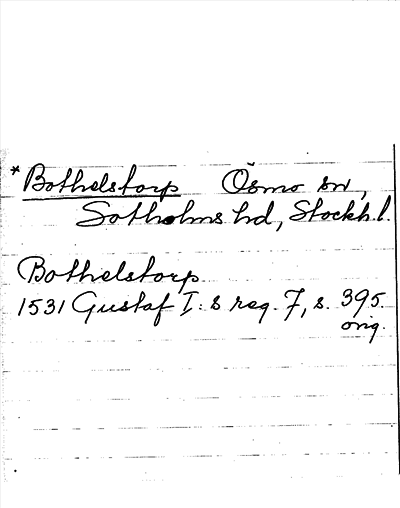 *Bothelstorp Ösmo sn,
Sotholms hd, Stockh. l.
Bothelstorp
1531 Gustaf I:s reg. 7, s. 395.
orig.